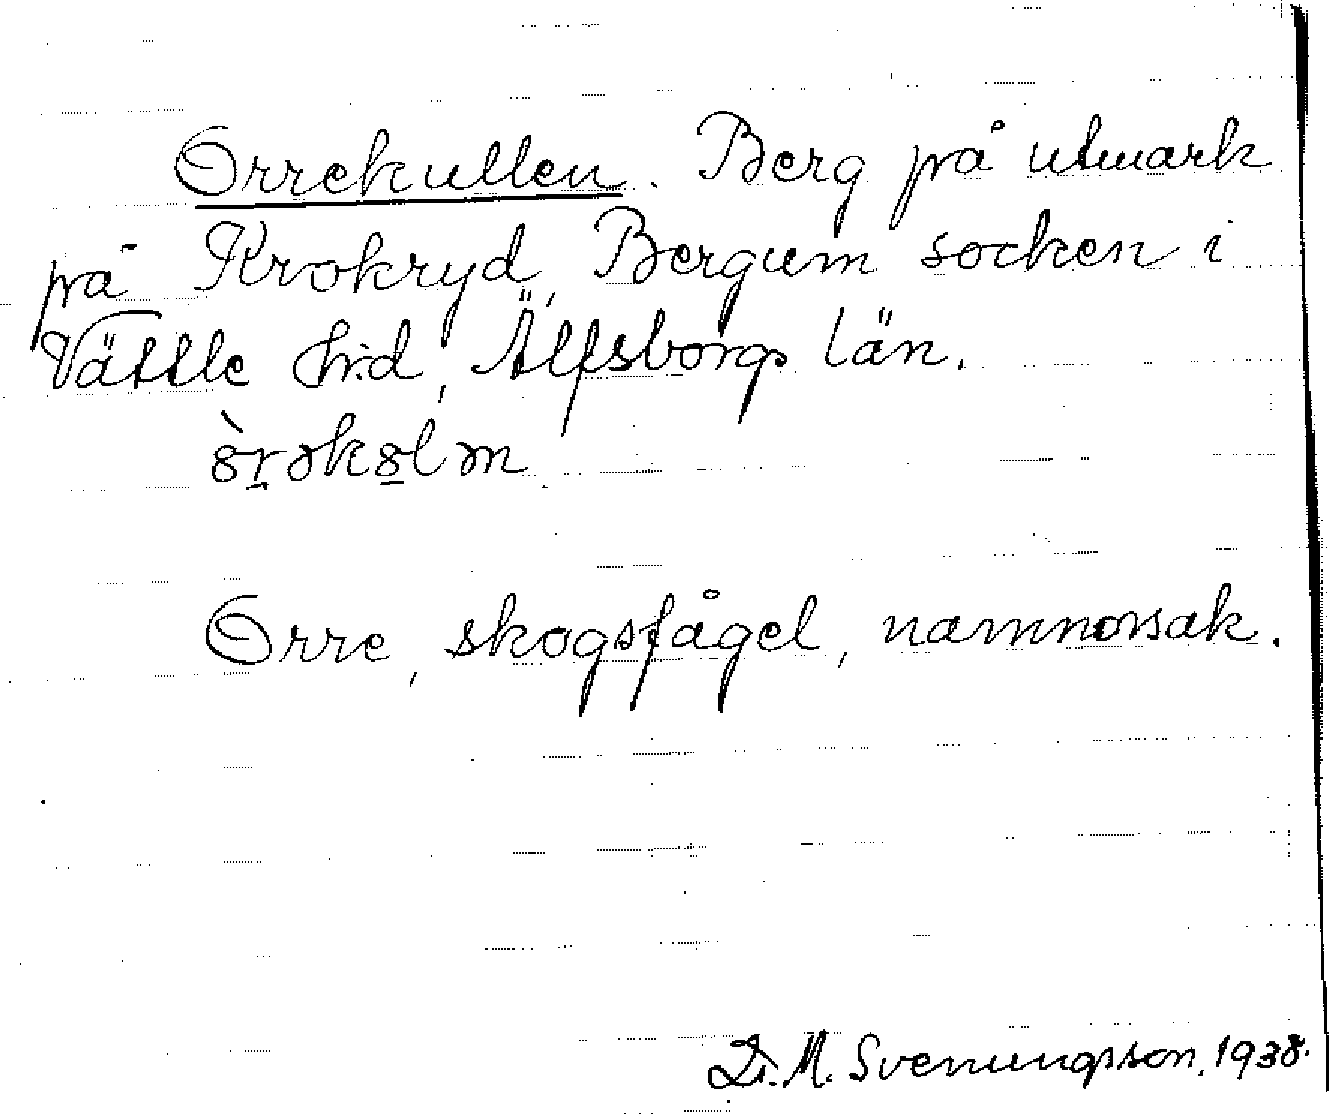 Orrekullen. Berg på utmark
på Krokryd, Bergum socken i
Vättle hrd, Älfsborgs län.
Orre, skogsfågel, namnorsak.
D. M. Svenungsson, 1938.